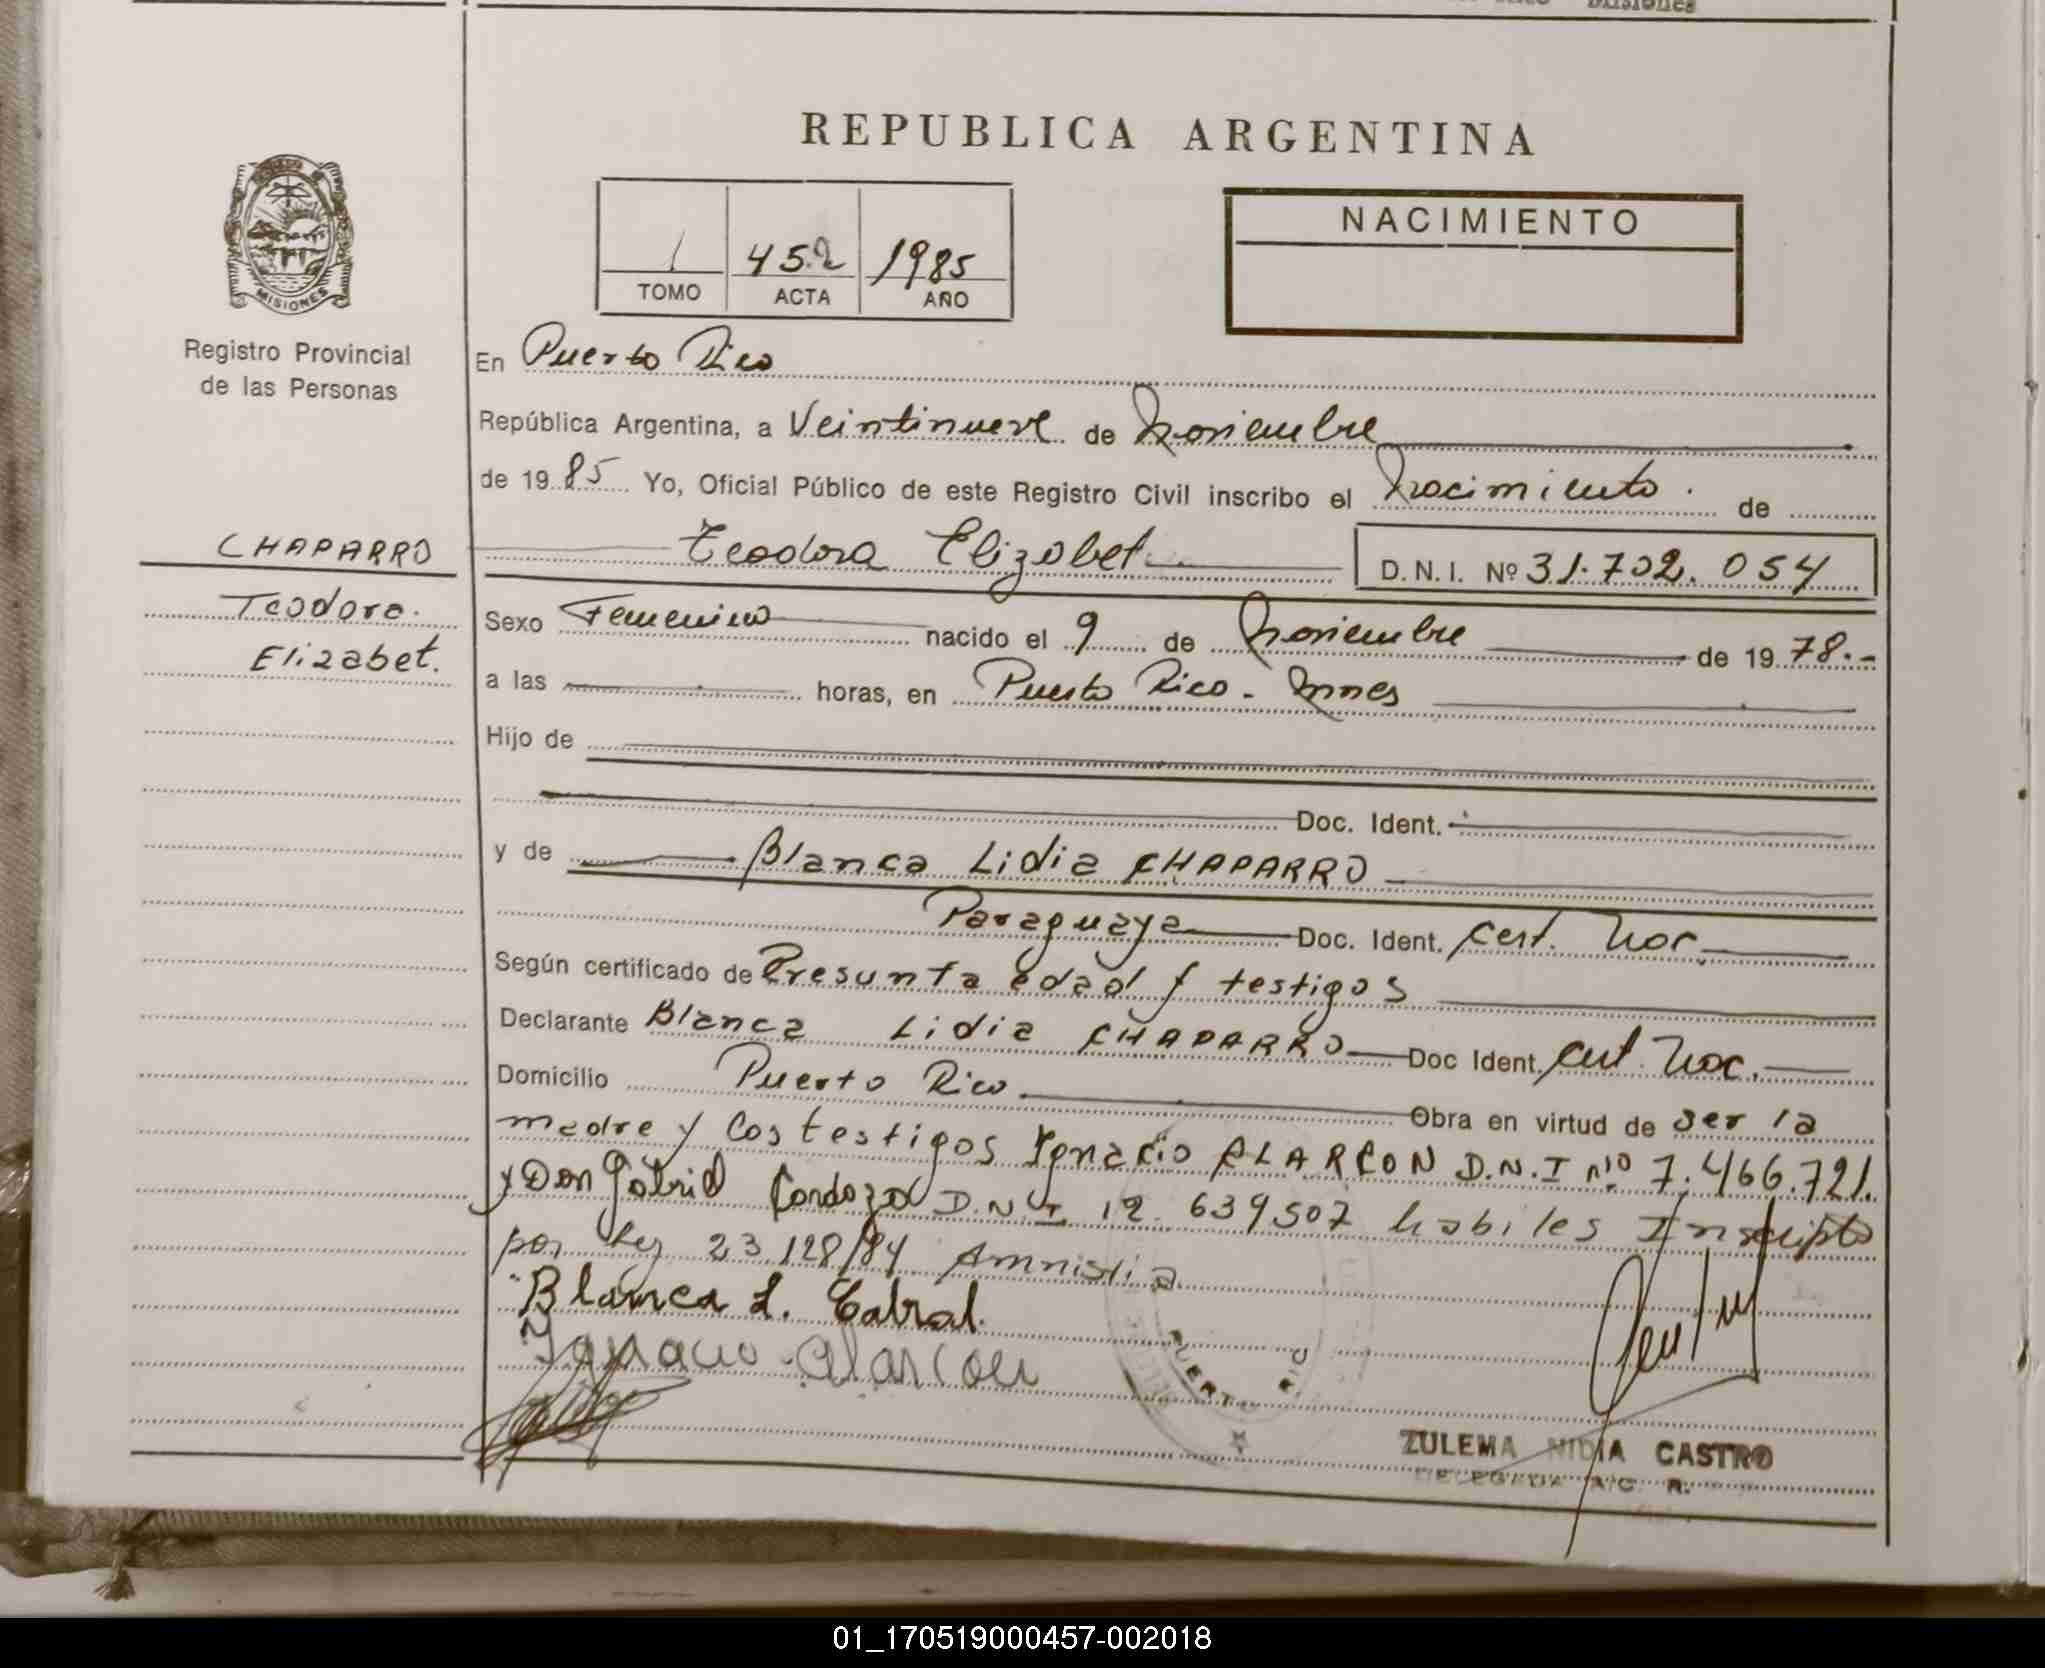 Misiones
REPUBLICA ARGENTINA
NACIMIENTO
1 452 1985
TOMO ACTA AÑO
MISIONES
Registro Provincial
de las Personas
En Puerto Rico
República Argentina, a Veintinueve de Noviembre
de 1985 Yo, Oficial Público de este Registro Civil inscribo el Nacimiento. de
CHAPARRO
Teodora Elizabet
D.N.I. Nº 31.702.054
Teodora
Elizabet.
Sexo Femenino nacido el 9 de Noviembre de 1978.-
a las horas, en Puerto Rico - Mnes
Hijo de
Doc. Ident.
y de Blanca Lidia CHAPARRO
Paraguaya Doc. Ident. Cert. Nac.
Según certificado de Presunta edad y testigos
Declarante Blanca Lidia CHAPARRO Doc Ident. Cert. Nac.
Domicilio Puerto Rico Obra en virtud de ser la
madre y los testigos Ignacio ALARCON D.N.I nº 7.466.721.
y Don Gabriel Cardozo D.N.I 12.639507 habiles Inscripto
por Ley 23.128/84 Amnistia
Blanca L. Cabral.
Ignacio Alarcon
PUERTO RICO
ZULEMA NIDIA CASTRO
DELEGADA R.C. R.
01_170519000457-002018